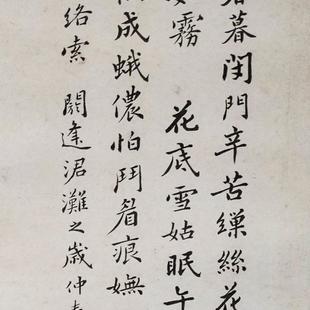 暮閉門辛苦繅絲花
霧 花底雪姑眠午
成蛾儂怕鬥眉痕嫵
絡索 閼逢涒灘之歲仲春